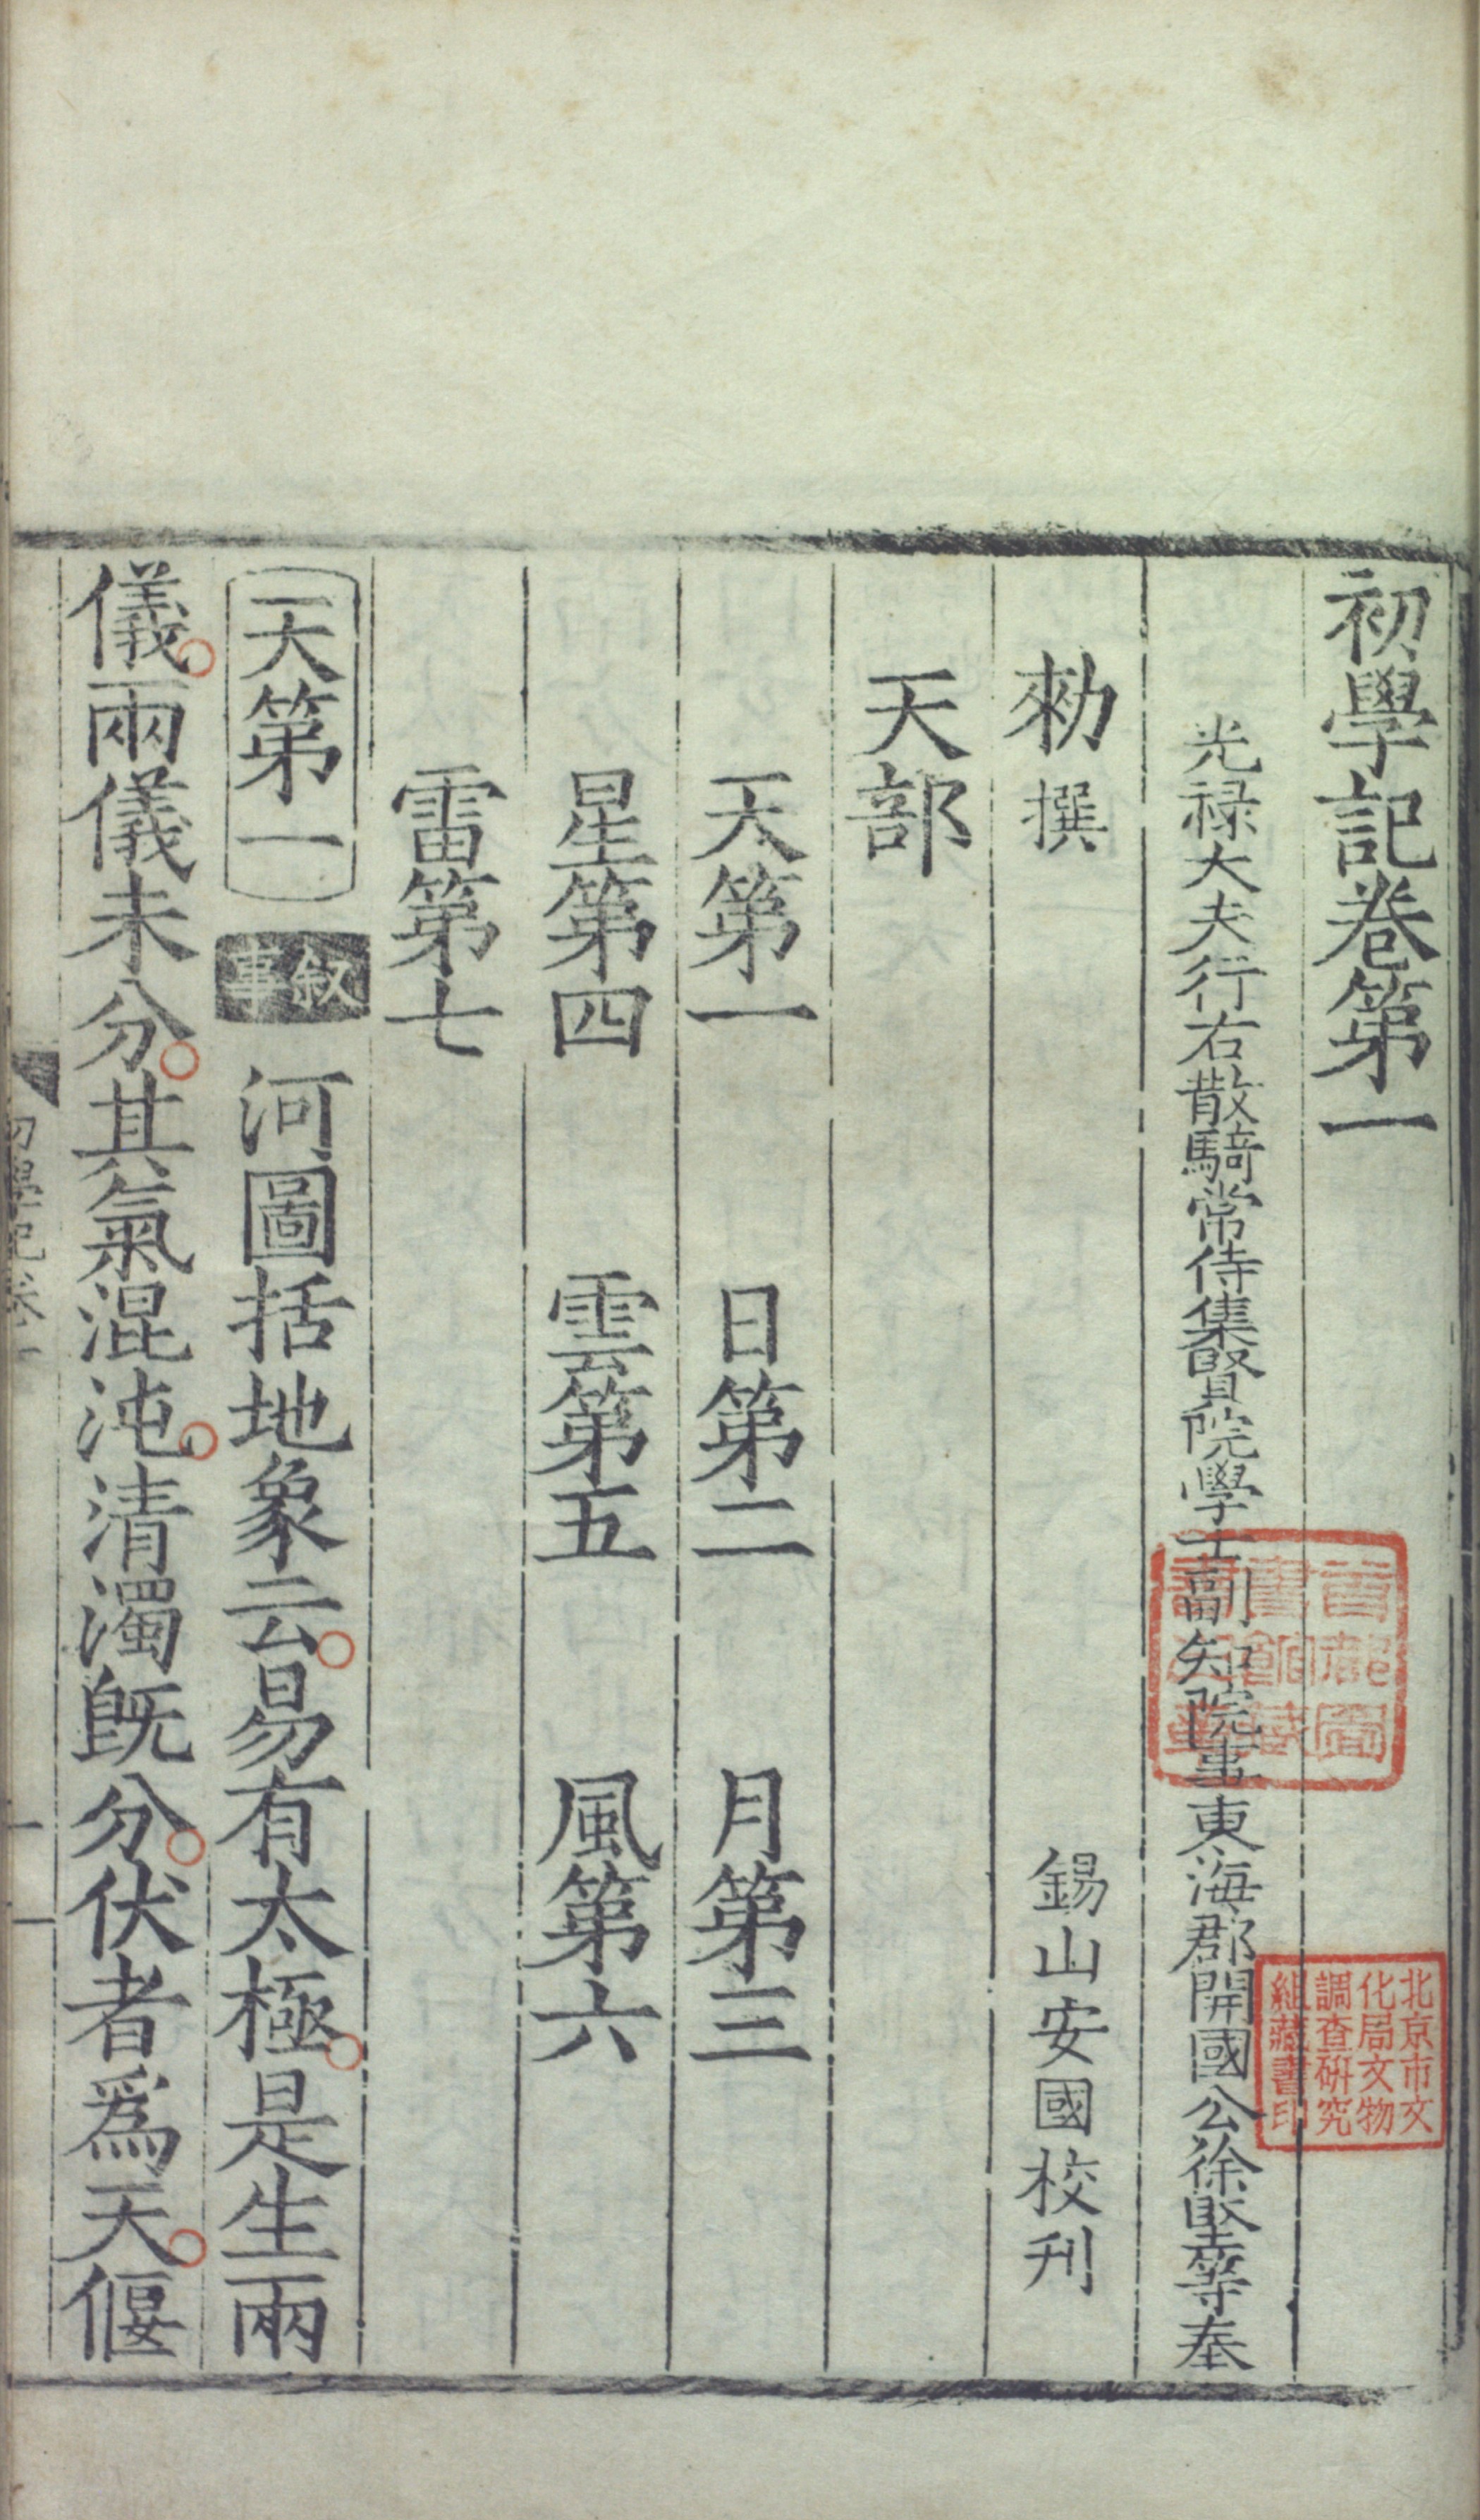 初學記卷第一
光禄大夫行右散騎常侍集賢院學士副知院事東海郡開國公徐堅等奉
勑撰 錫山安國校刊
天部
天第一 日第二 月第三
星第四 雲第五 風第六
雷第七
天第一 叙事 河圖括地象云易有太極是生兩
儀兩儀未分其氣混沌清濁旣分伏者爲天偃
初學記卷一
首都圖
書館藏
書之章
北京市文
化局文物
調查研究
組藏書印